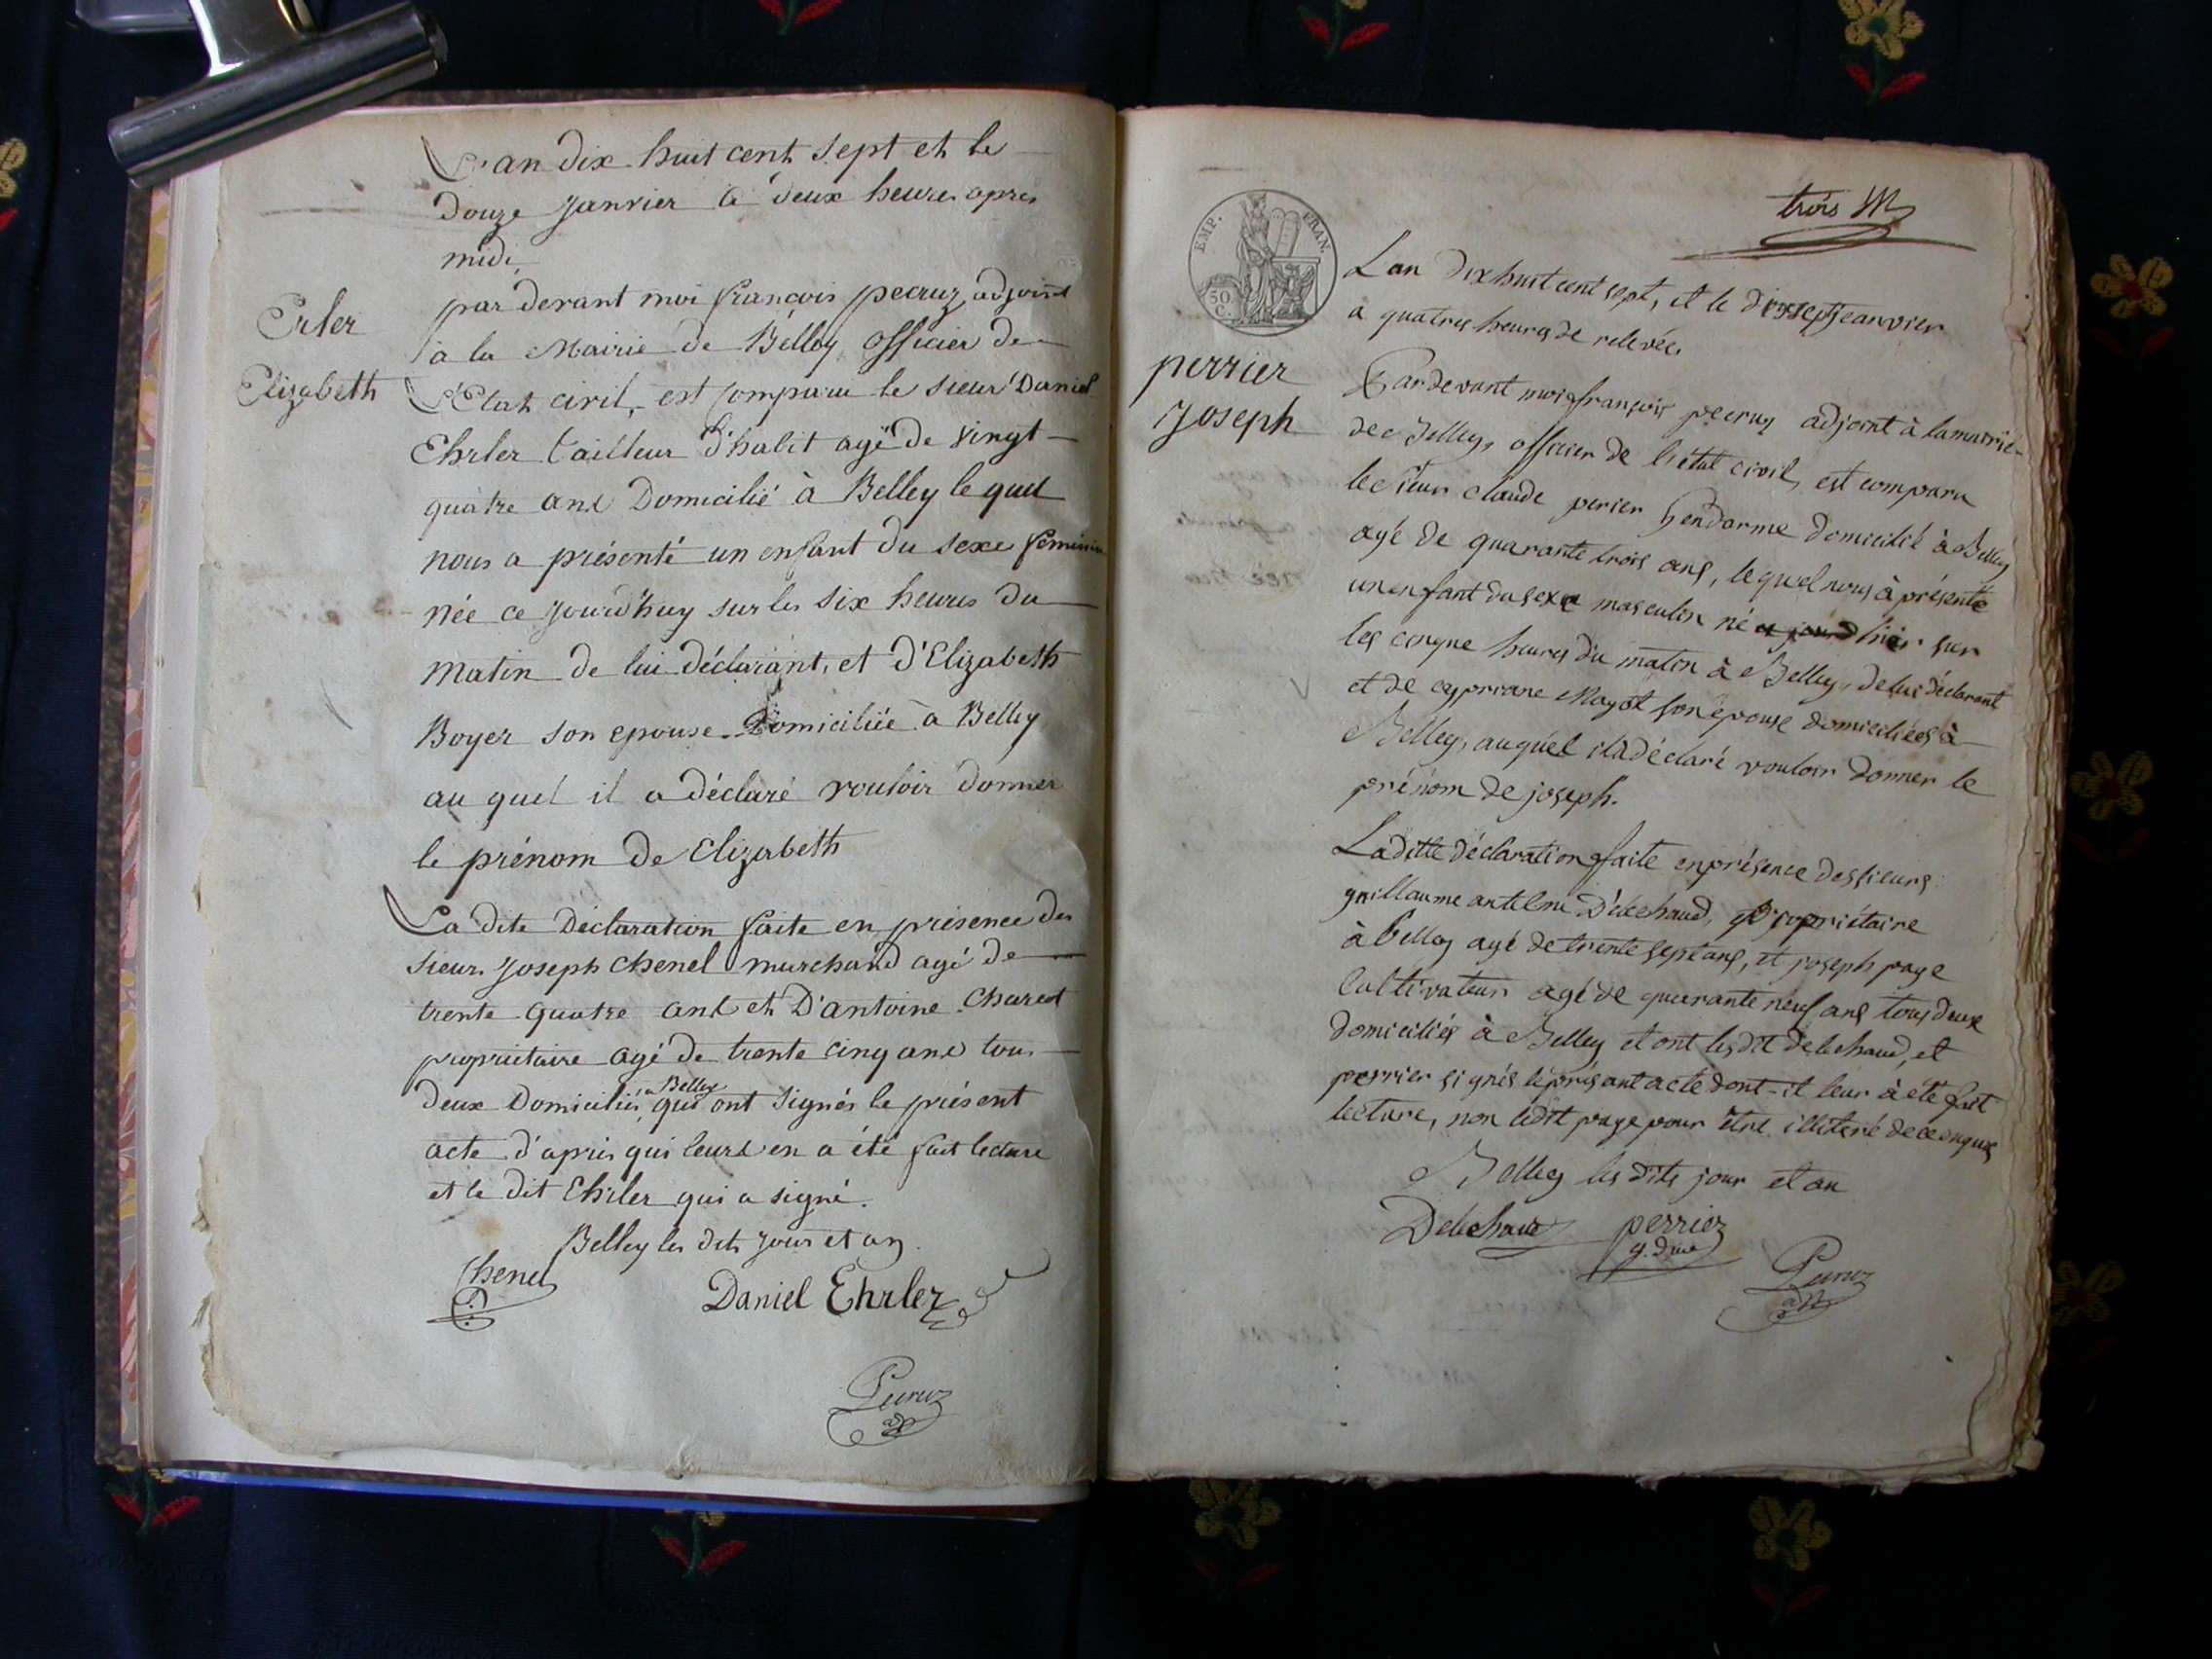 L'an dix huit cent sept et le
douze janvier à deux heures apres
midi
par devant moi françois pecruz, adjoint
à la Mairie de Belley officier de
L'Etat civil, est comparu le sieur Daniel
Ehrler tailleur d'habit agé de vingt
quatre ans Domicilié à Belley le quel
nous a présenté un enfant du sexe feminin
née ce jourd'huy sur les six heures du
matin de lui déclarant, et d'Elizabeth
Boyer son epouse Domiciliée à Belley
au quel il a déclaré vouloir donner
le prénom de Elizabeth
La dite Déclaration faite en présence des
sieurs Joseph Chenel marchand agé de
trente quatre ans et D'antoine
propriétaire agé de trente cinq ans tous
deux Domiciliés à Belley qui ont signés le présent
acte d'apris qui leurs en a été fait lecture
et le dit Ehrler qui a signé.
Belley les dits jour et an
Chenel
Daniel Ehrler
Pecruz
adj
Erler
Elizabeth
trois
EMP. FRAN.
50 C.
L'an dix huit cent sept, et le dix sept jeanvier
a quatres heures de relevée,
perrier
Joseph
Pardevant moi françois pecruz adjoint à la mairie
de Belley, officier de l'état civil, est comparu
le sieur claude perier gendarme domicilié à Belley
agé de quarante trois ans, lequel nous à présenté
un enfant du sexe masculin né hier sur
les cinque heures du matin à Belley, de lui déclarant
et de cypriane Mayot son épouse domiciliées à
Belley, auquel il à déclaré vouloir donner le
prénom de joseph.
La ditte déclaration faite en présence des sieurs
guillaume antelme Debechaud, propriétaire
à belley agé de trente sept ans, et joseph page
Cultivateur agé de quarante neuf ans tous deux
domiciliés à Belley et ont lesdit debechaud, et
perrier signés le présant acte dont-il leur à été fait
lecture, non ledit page pour être illiteré de ce enquis
Belley les dits jour et an
Debechaud perrier
Pecruz
adj